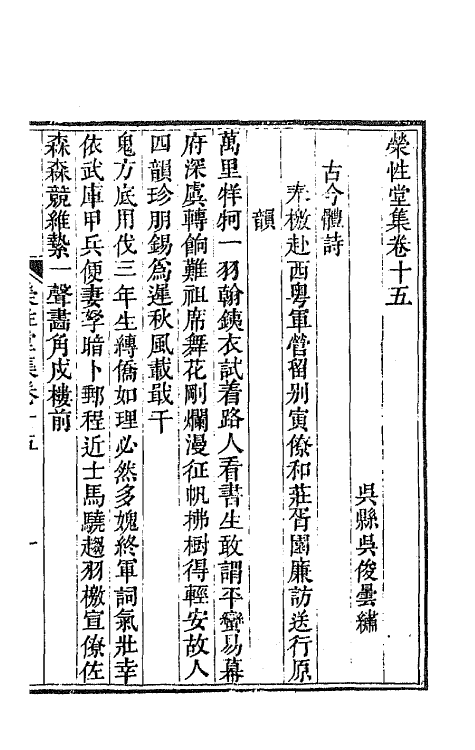 榮性堂集卷十五
吳縣吳俊曇繡
古今體詩
奉檄赴西粵軍營留別寅僚和莊胥園廉訪送行原
韻
萬里牂牁一羽翰銕衣試着路人看書生敢謂平蠻易幕
府深虞轉餉難祖席舞花剛爛漫征帆拂樹得輕安故人
四韻珍朋錫為遲秋風載戢干
鬼方底用伐三年生縛僑如理必然多媿終軍詞氣壯幸
依武庫甲兵便妻孥暗卜郵程近士馬驍趨羽檄宣僚佐
森森競維縶一聲畵角戍樓前
榮性堂集卷十五
一